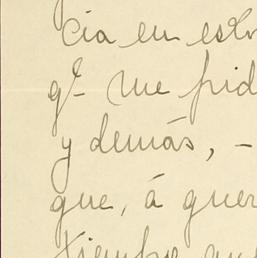 cia en esto
qᵉ me pid
y demás, -
que, á quer
tiempo que